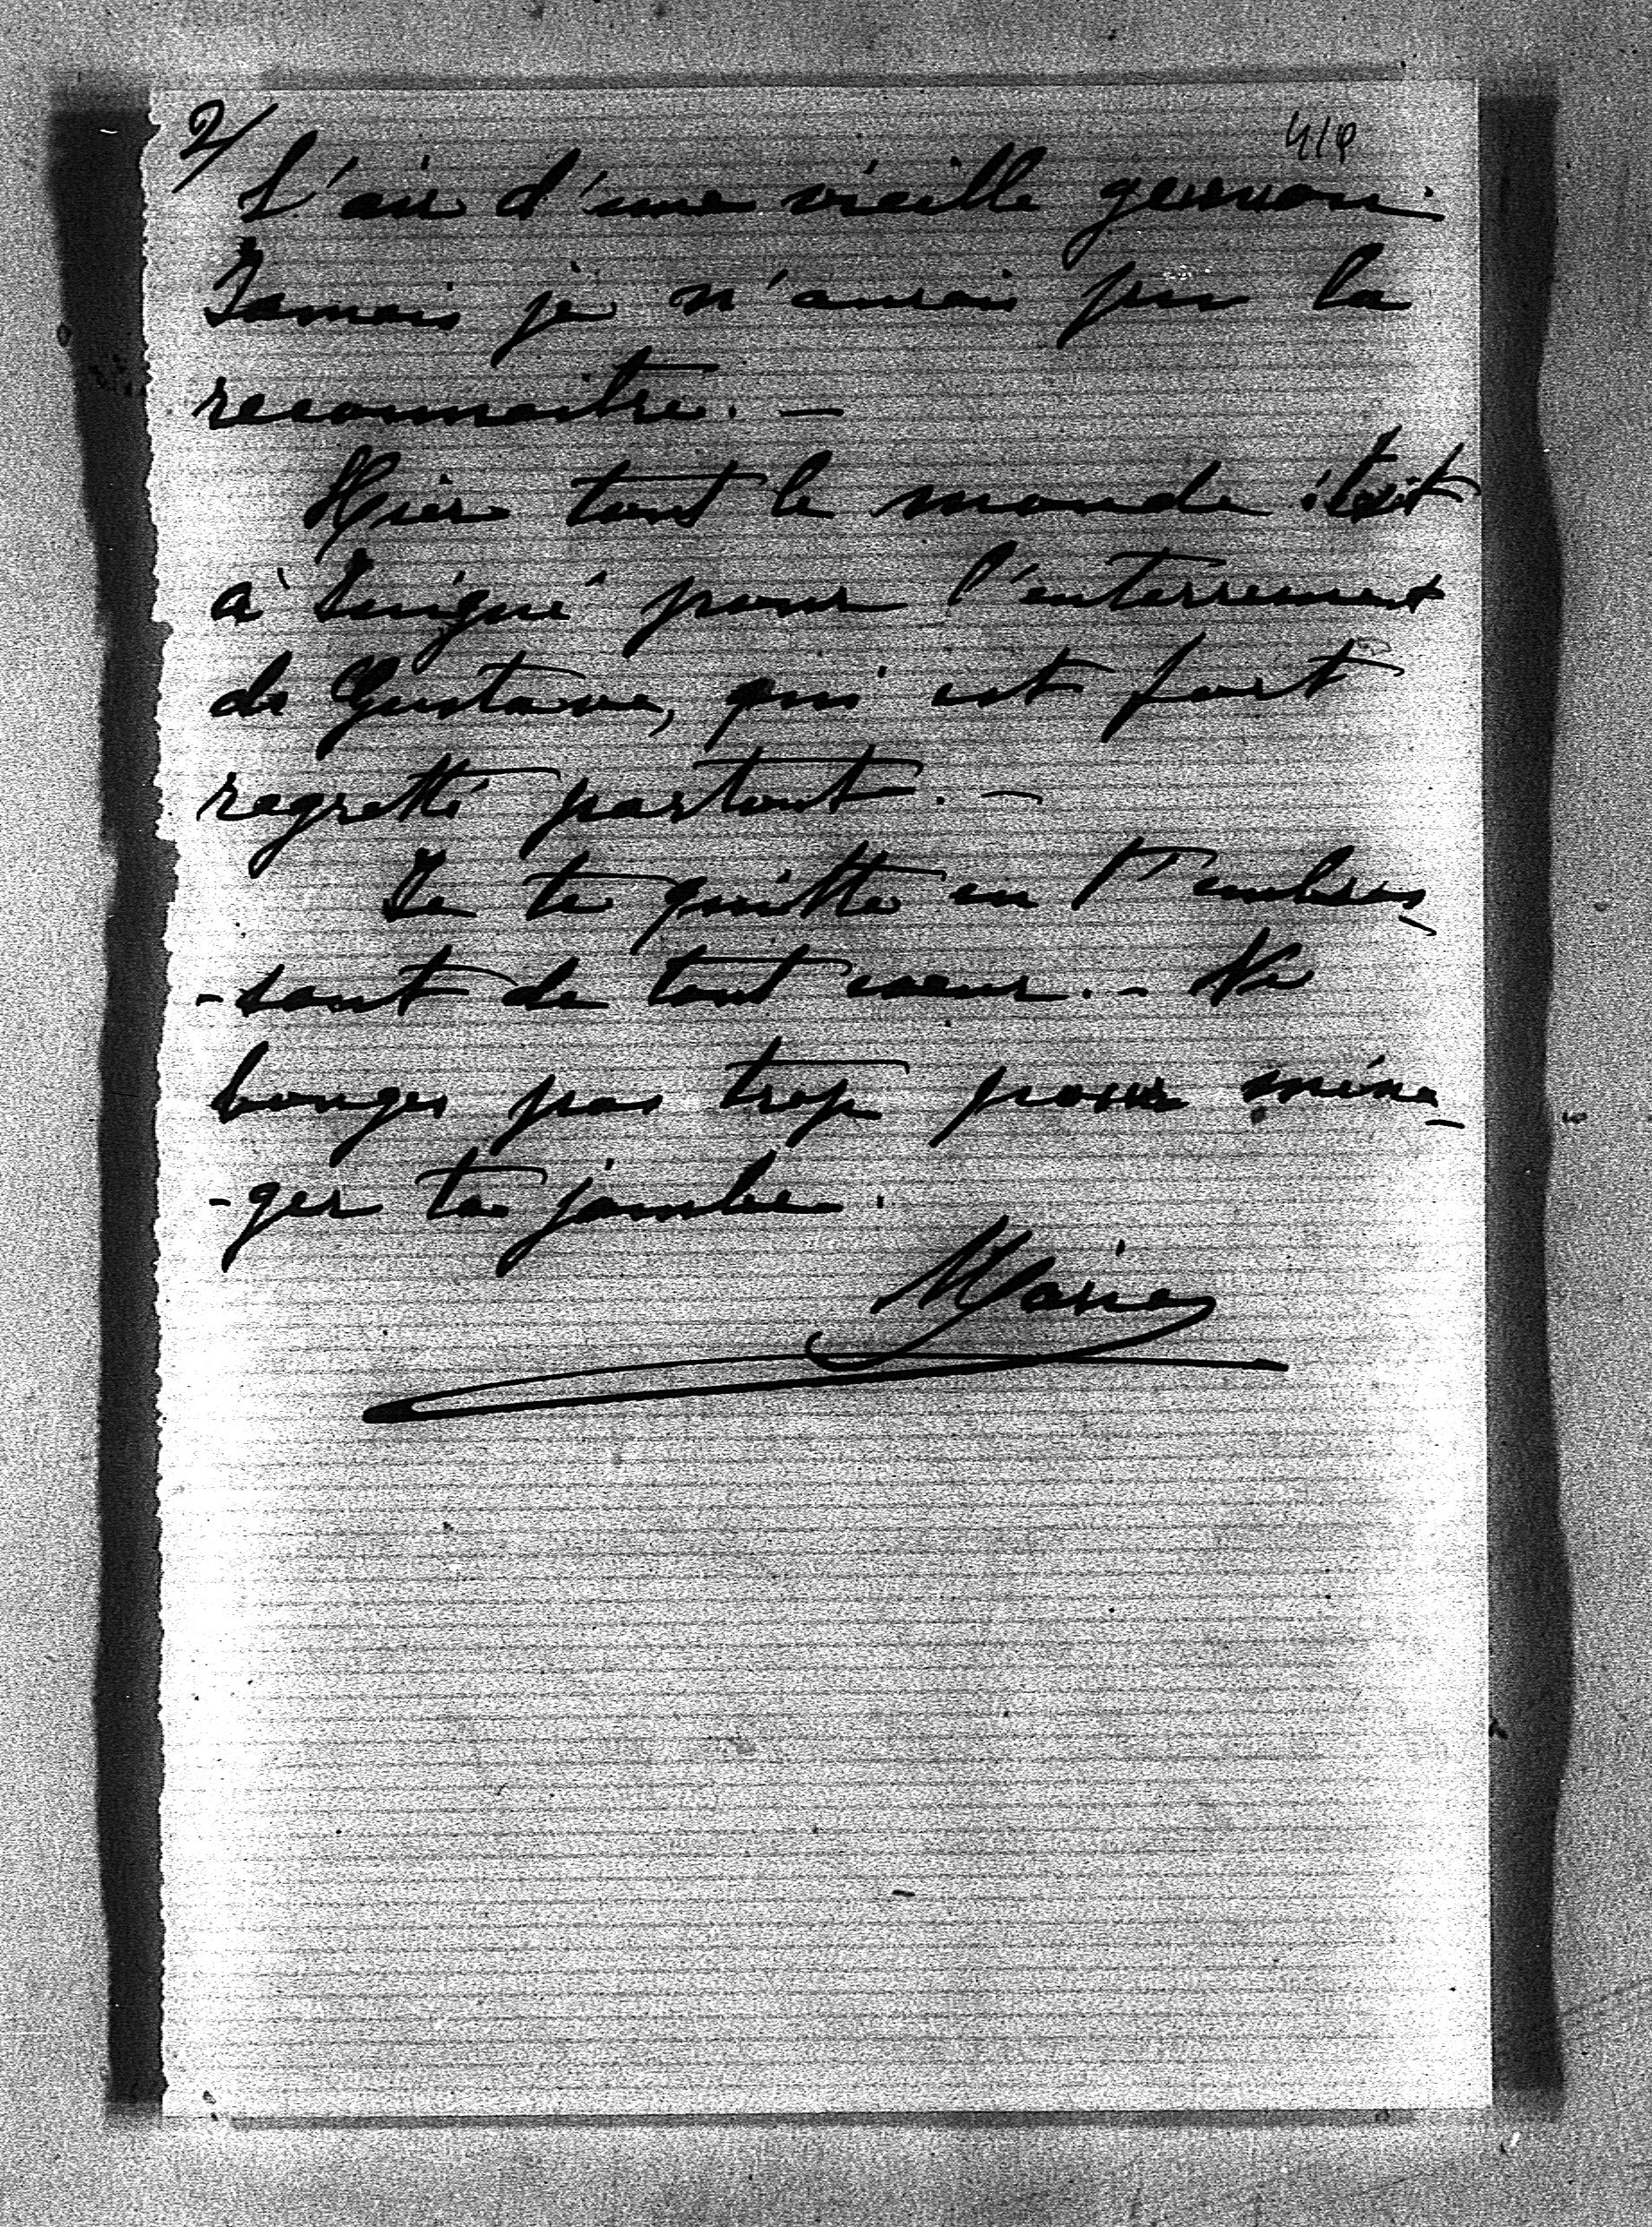 2/
L'air d'une vieille
Jamais je n'aurais pu la
reconnaitre. —
Hier tout le monde était
à Juigné pour l'enterrement
de Gustave, qui est fort
regretté partout. —
Je te quitte en t'embras
-sant de tout coeur. — Ne
bouges pas trop pour ména
-ger ta jambe.
Marie